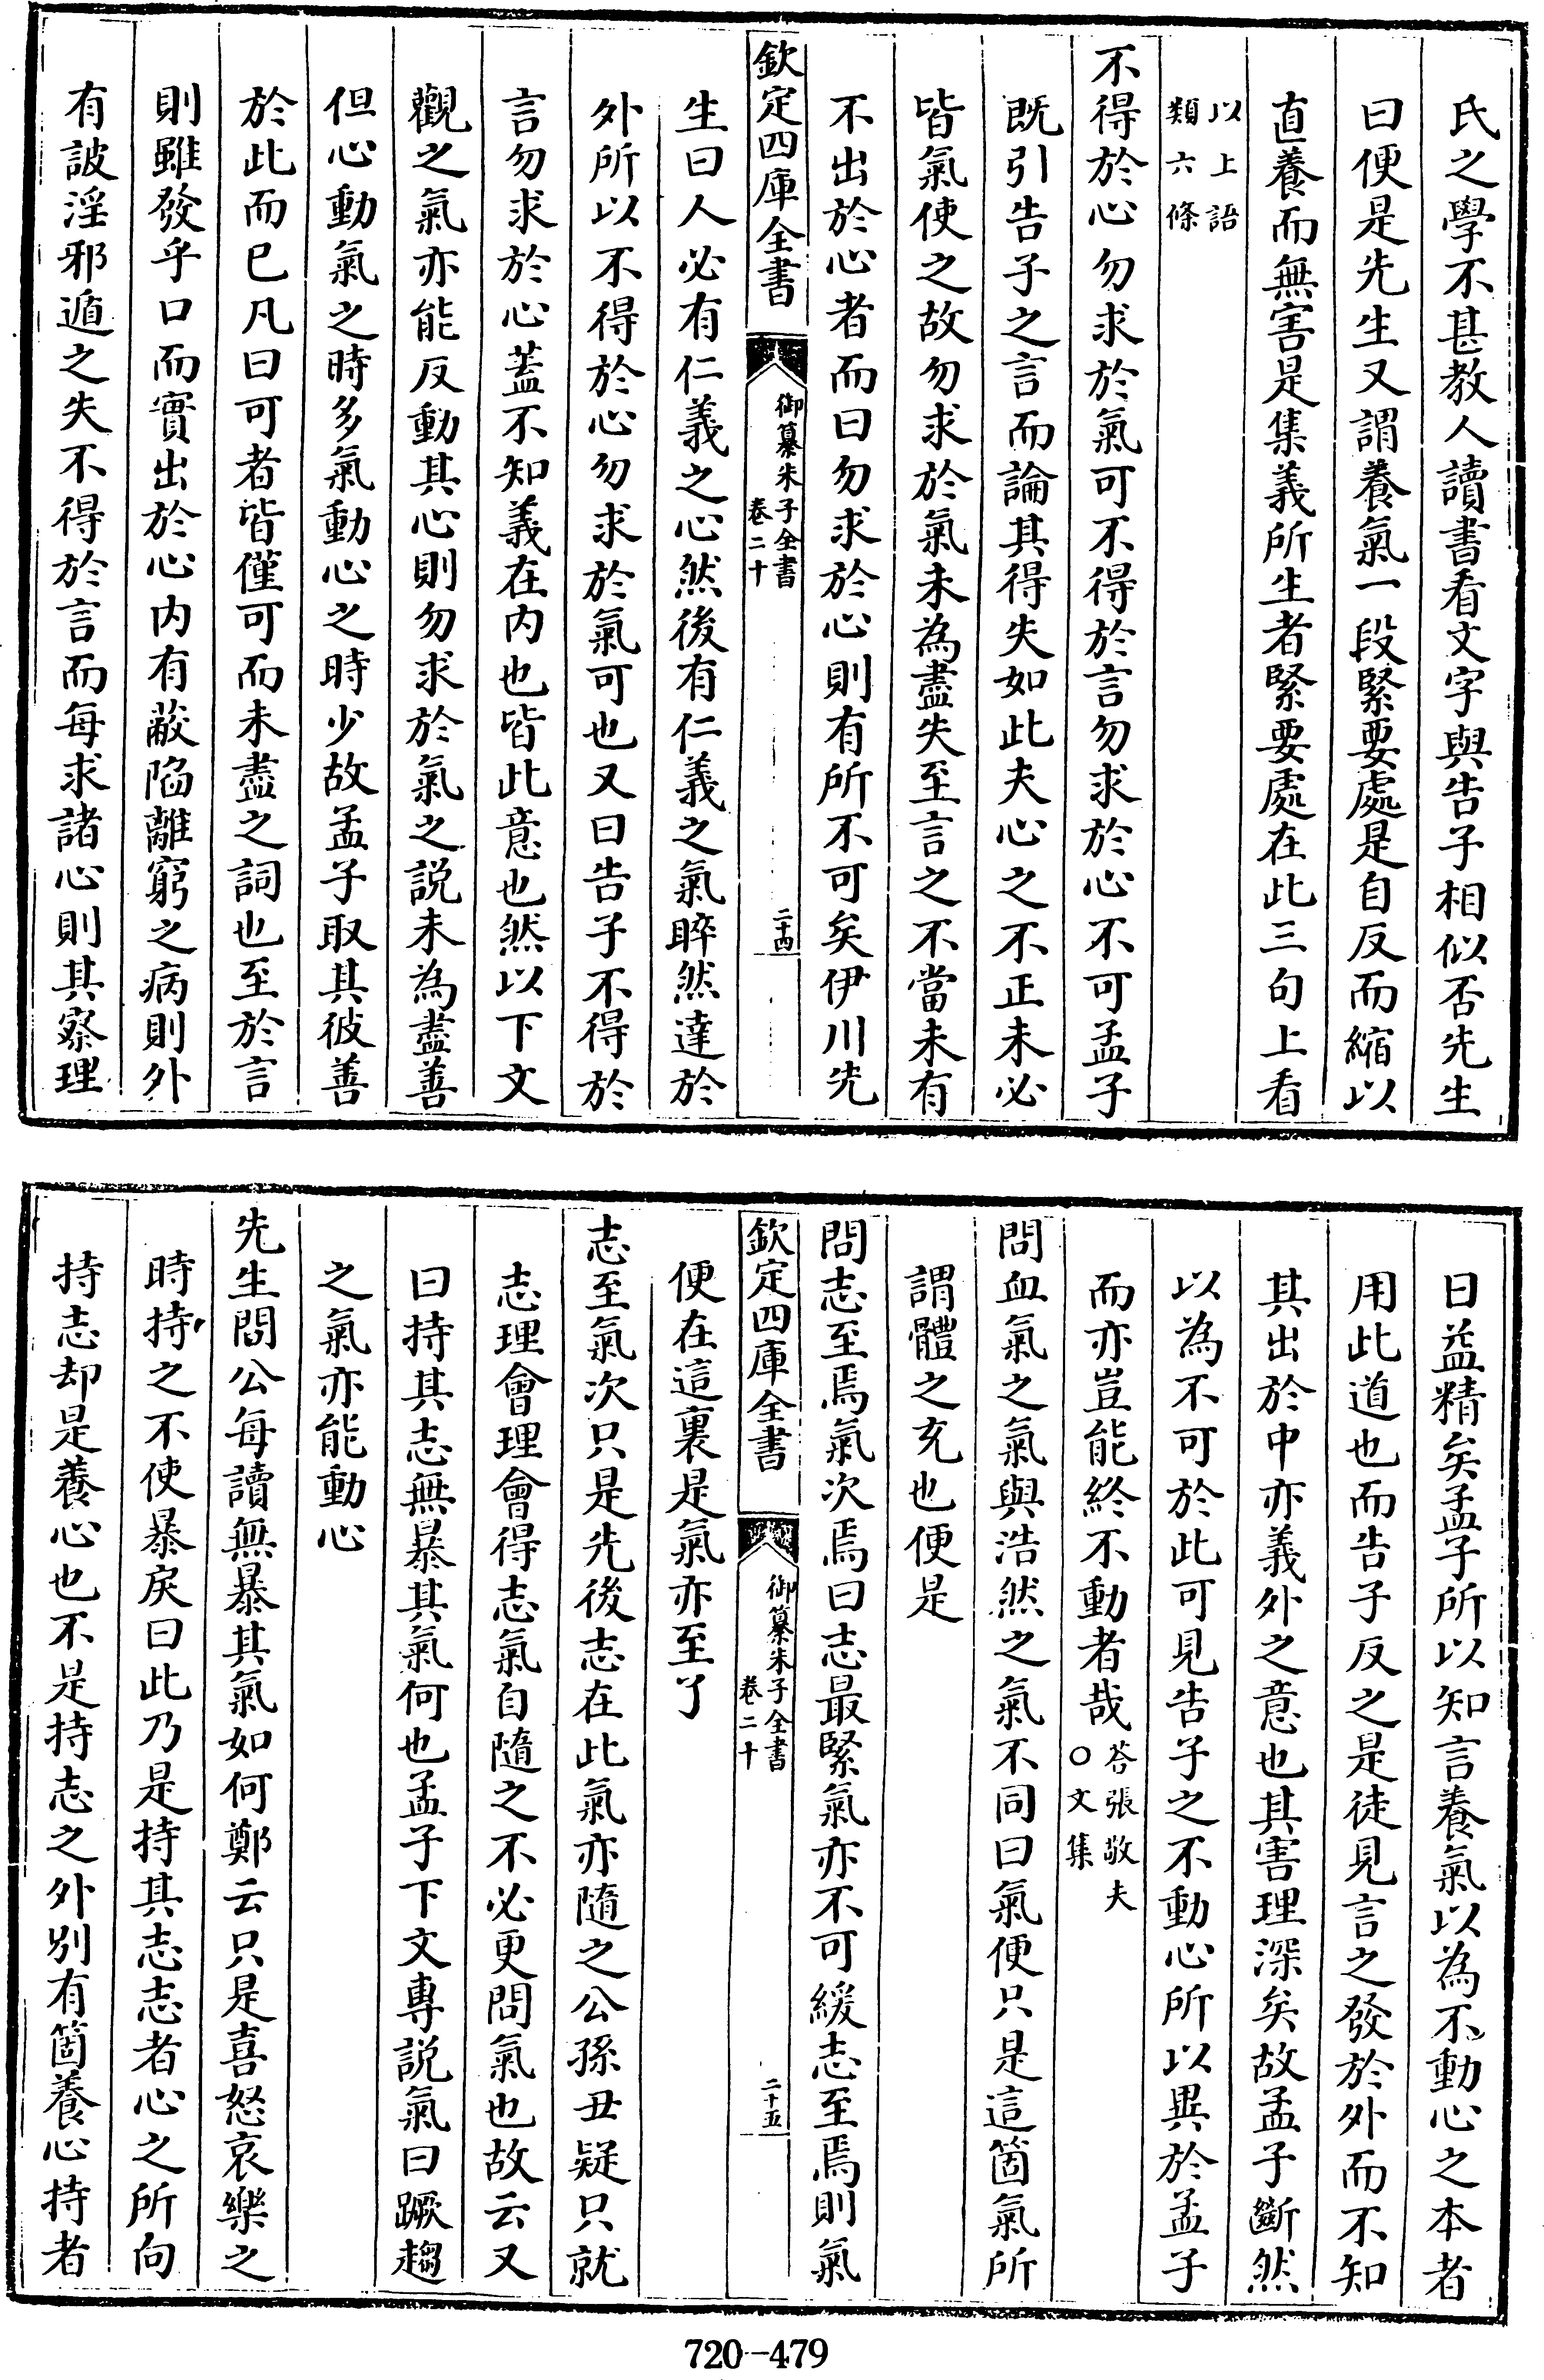 氏之學不甚教人讀書看文字與告子相似否先生
曰便是先生又謂養氣一段緊要處是自反而縮以
直養而無害是集義所生者緊要處在此三句上看
以上語
類六條
不得於心勿求於氣可不得於言勿求於心不可孟子
既引告子之言而論其得失如此夫心之不正未必
皆氣使之故勿求於氣未為盡失至言之不當未有
不出於心者而曰勿求於心則有所不可矣伊川先
欽定四庫全書
御纂朱子全書
卷二十
二十四
生曰人必有仁義之心然後有仁義之氣睟然達於
外所以不得於心勿求於氣可也又曰告子不得於
言勿求於心蓋不知義在内也皆此意也然以下文
觀之氣亦能反動其心則勿求於氣之説未為盡善
但心動氣之時多氣動心之時少故孟子取其彼善
於此而已凡曰可者皆僅可而未盡之詞也至於言
則雖發乎口而實出於心内有蔽陷離窮之病則外
有詖淫邪遁之失不得於言而每求諸心則其察理
日益精矣孟子所以知言養氣以為不動心之本者
用此道也而告子反之是徒見言之發於外而不知
其出於中亦義外之意也其害理深矣故孟子斷然
以為不可於此可見告子之不動心所以異於孟子
而亦豈能終不動者哉
荅張敬夫
○文集
問血氣之氣與浩然之氣不同曰氣便只是這箇氣所
謂體之充也便是
問志至焉氣次焉曰志最緊氣亦不可緩志至焉則氣
欽定四庫全書
御纂朱子全書
卷二十
二十五
便在這裏是氣亦至了
志至氣次只是先後志在此氣亦隨之公孫丑疑只就
志理會理會得志氣自隨之不必更問氣也故云又
曰持其志無暴其氣何也孟子下文專説氣曰蹶趨
之氣亦能動心
先生問公每讀無暴其氣如何鄭云只是喜怒哀樂之
時持之不使暴戾曰此乃是持其志志者心之所向
持志却是養心也不是持志之外別有箇養心持者
720-479